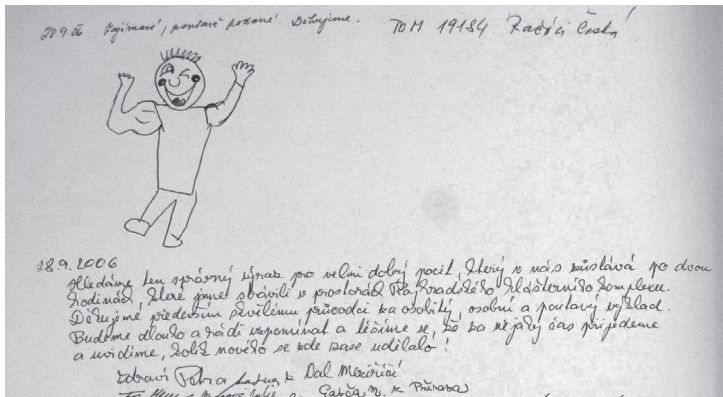 28.9.06 Zajímavé, poutavě podané! Děkujeme. TOM 19184 Zadáci Česká
28.9.2006
Hledáme ten správný výraz pro velmi dobrý pocit, který v nás zůstává po dvou
hodinách, které jsme strávili v prostorách Rajhradského klášterního komplexu.
Děkujeme především skvělému průvodci za osobitý, osobní a poutavý výklad.
Budeme dlouho a rádi vzpomínat a těšíme se, že za nějaký čas přijedeme
a uvidíme, kolik nového se zde zase udělalo!
Zdraví Petra z Dal Meziříčí